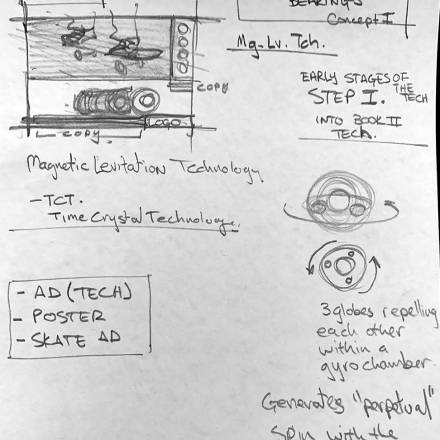 BEARINGS
Concept I
Mg-Lv. Tch.
COPY
COPY
LOGO
EARLY STAGES OF
THE
TECH
STEP I.
INTO BOOK II
TECH.
Magnetic Levitation Technology
-TCT.
Time Crystal Technology.
- AD (TECH)
- POSTER
- SKATE AD
3 globes repelling
each other
within a
gyro chamber.
Generates "perpetual"
Spin with the